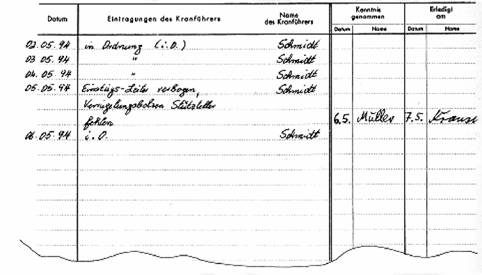 Datum Eintragungen des Kranführers Name des Kranführers Kenntnis genommen Erledigt am
Datum Name Datum Name
02.05.94 in Ordnung (i.O.) Schmidt
03.05.94 " Schmidt
04.05.94 " Schmidt
05.05.94 Einstiegs-Leiter verbogen, Schmidt
Verriegelungsbolzen Stützteller
fehlen 6.5. Müller 7.5. Krause
06.05.94 i.O. Schmidt